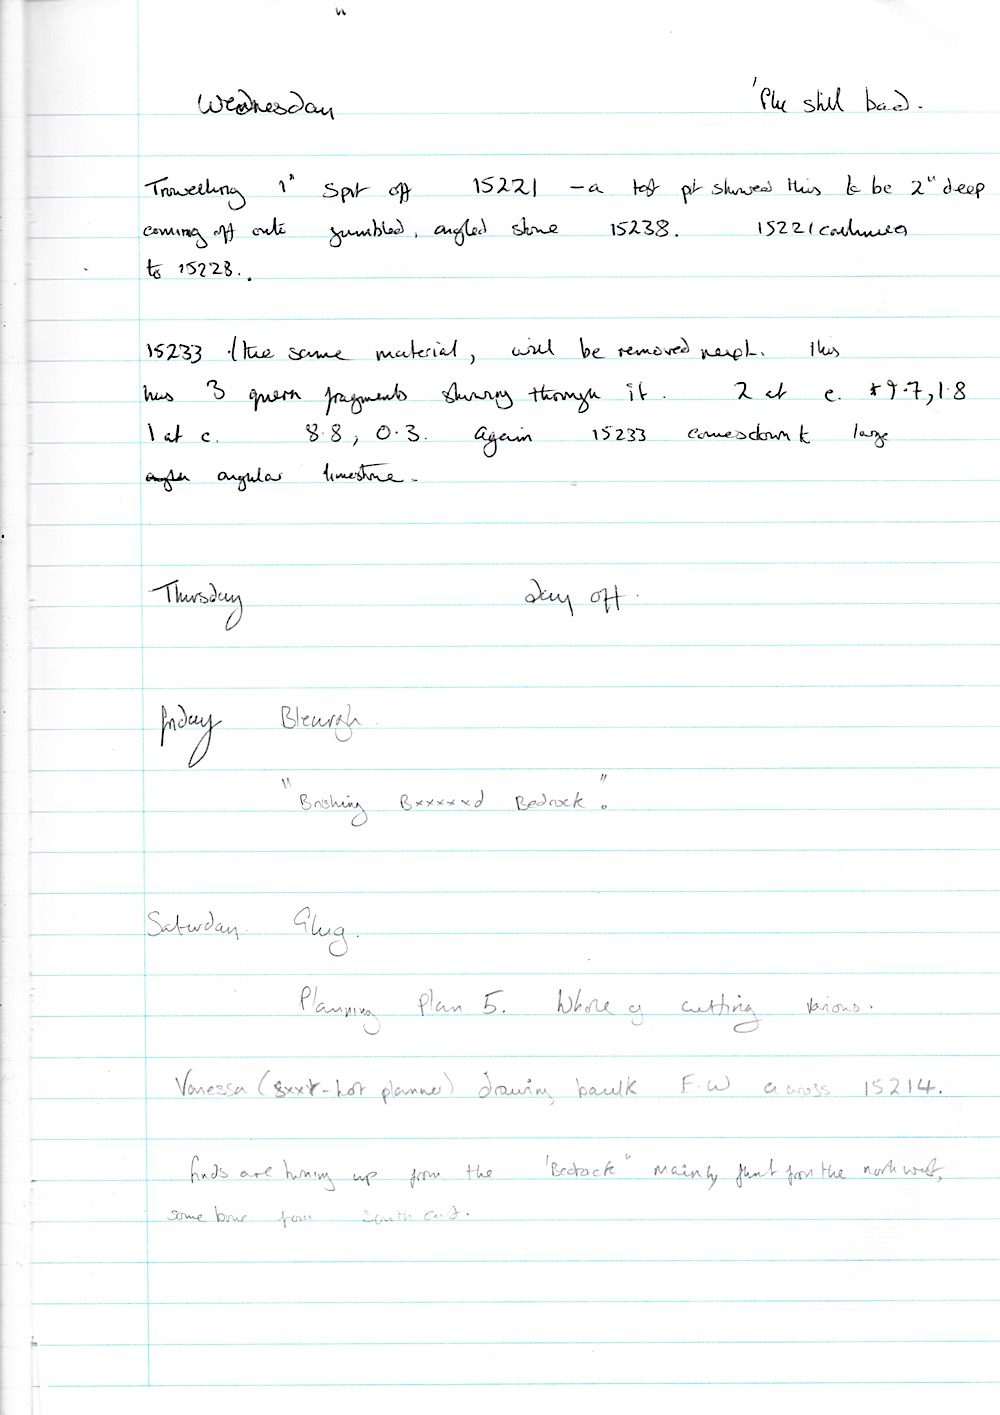 Wednesday 'Flu still bad.
Trowelling 1" Spit off 15221 - a test pit showed this to be 2" deep
coming off onto jumbled, angled stone 15238. 15221 continues
to 15228.
15233 the same material, will be removed next. This
has 3 quern fragments showing through it. 2 at c. 9.7, 1.8
1 at c. 8.8, 0.3. Again 15233 comes down to large
angular limestone.
Thursday day off.
Friday Bleurgh.
"Brushing Bxxxxxd Bedrock".
Saturday Glug.
Planning Plan 5. Whole of cutting various.
Vanessa (sxxt-hot planner) drawing baulk E-W across 15214.
finds are turning up from the 'Bedrock" mainly flint from the north west,
some bone from south east.